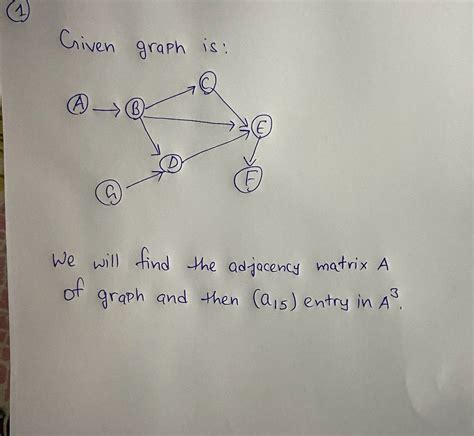 1
Given graph is:
C
A B
E
D
G F
We will find the adjacency matrix A
of graph and then (a₁₅) entry in A³.